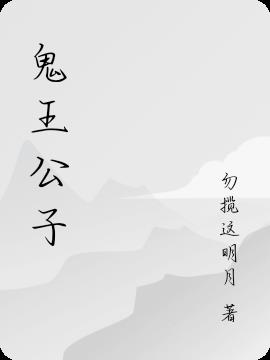 鬼王公子
勿揽这明月 著